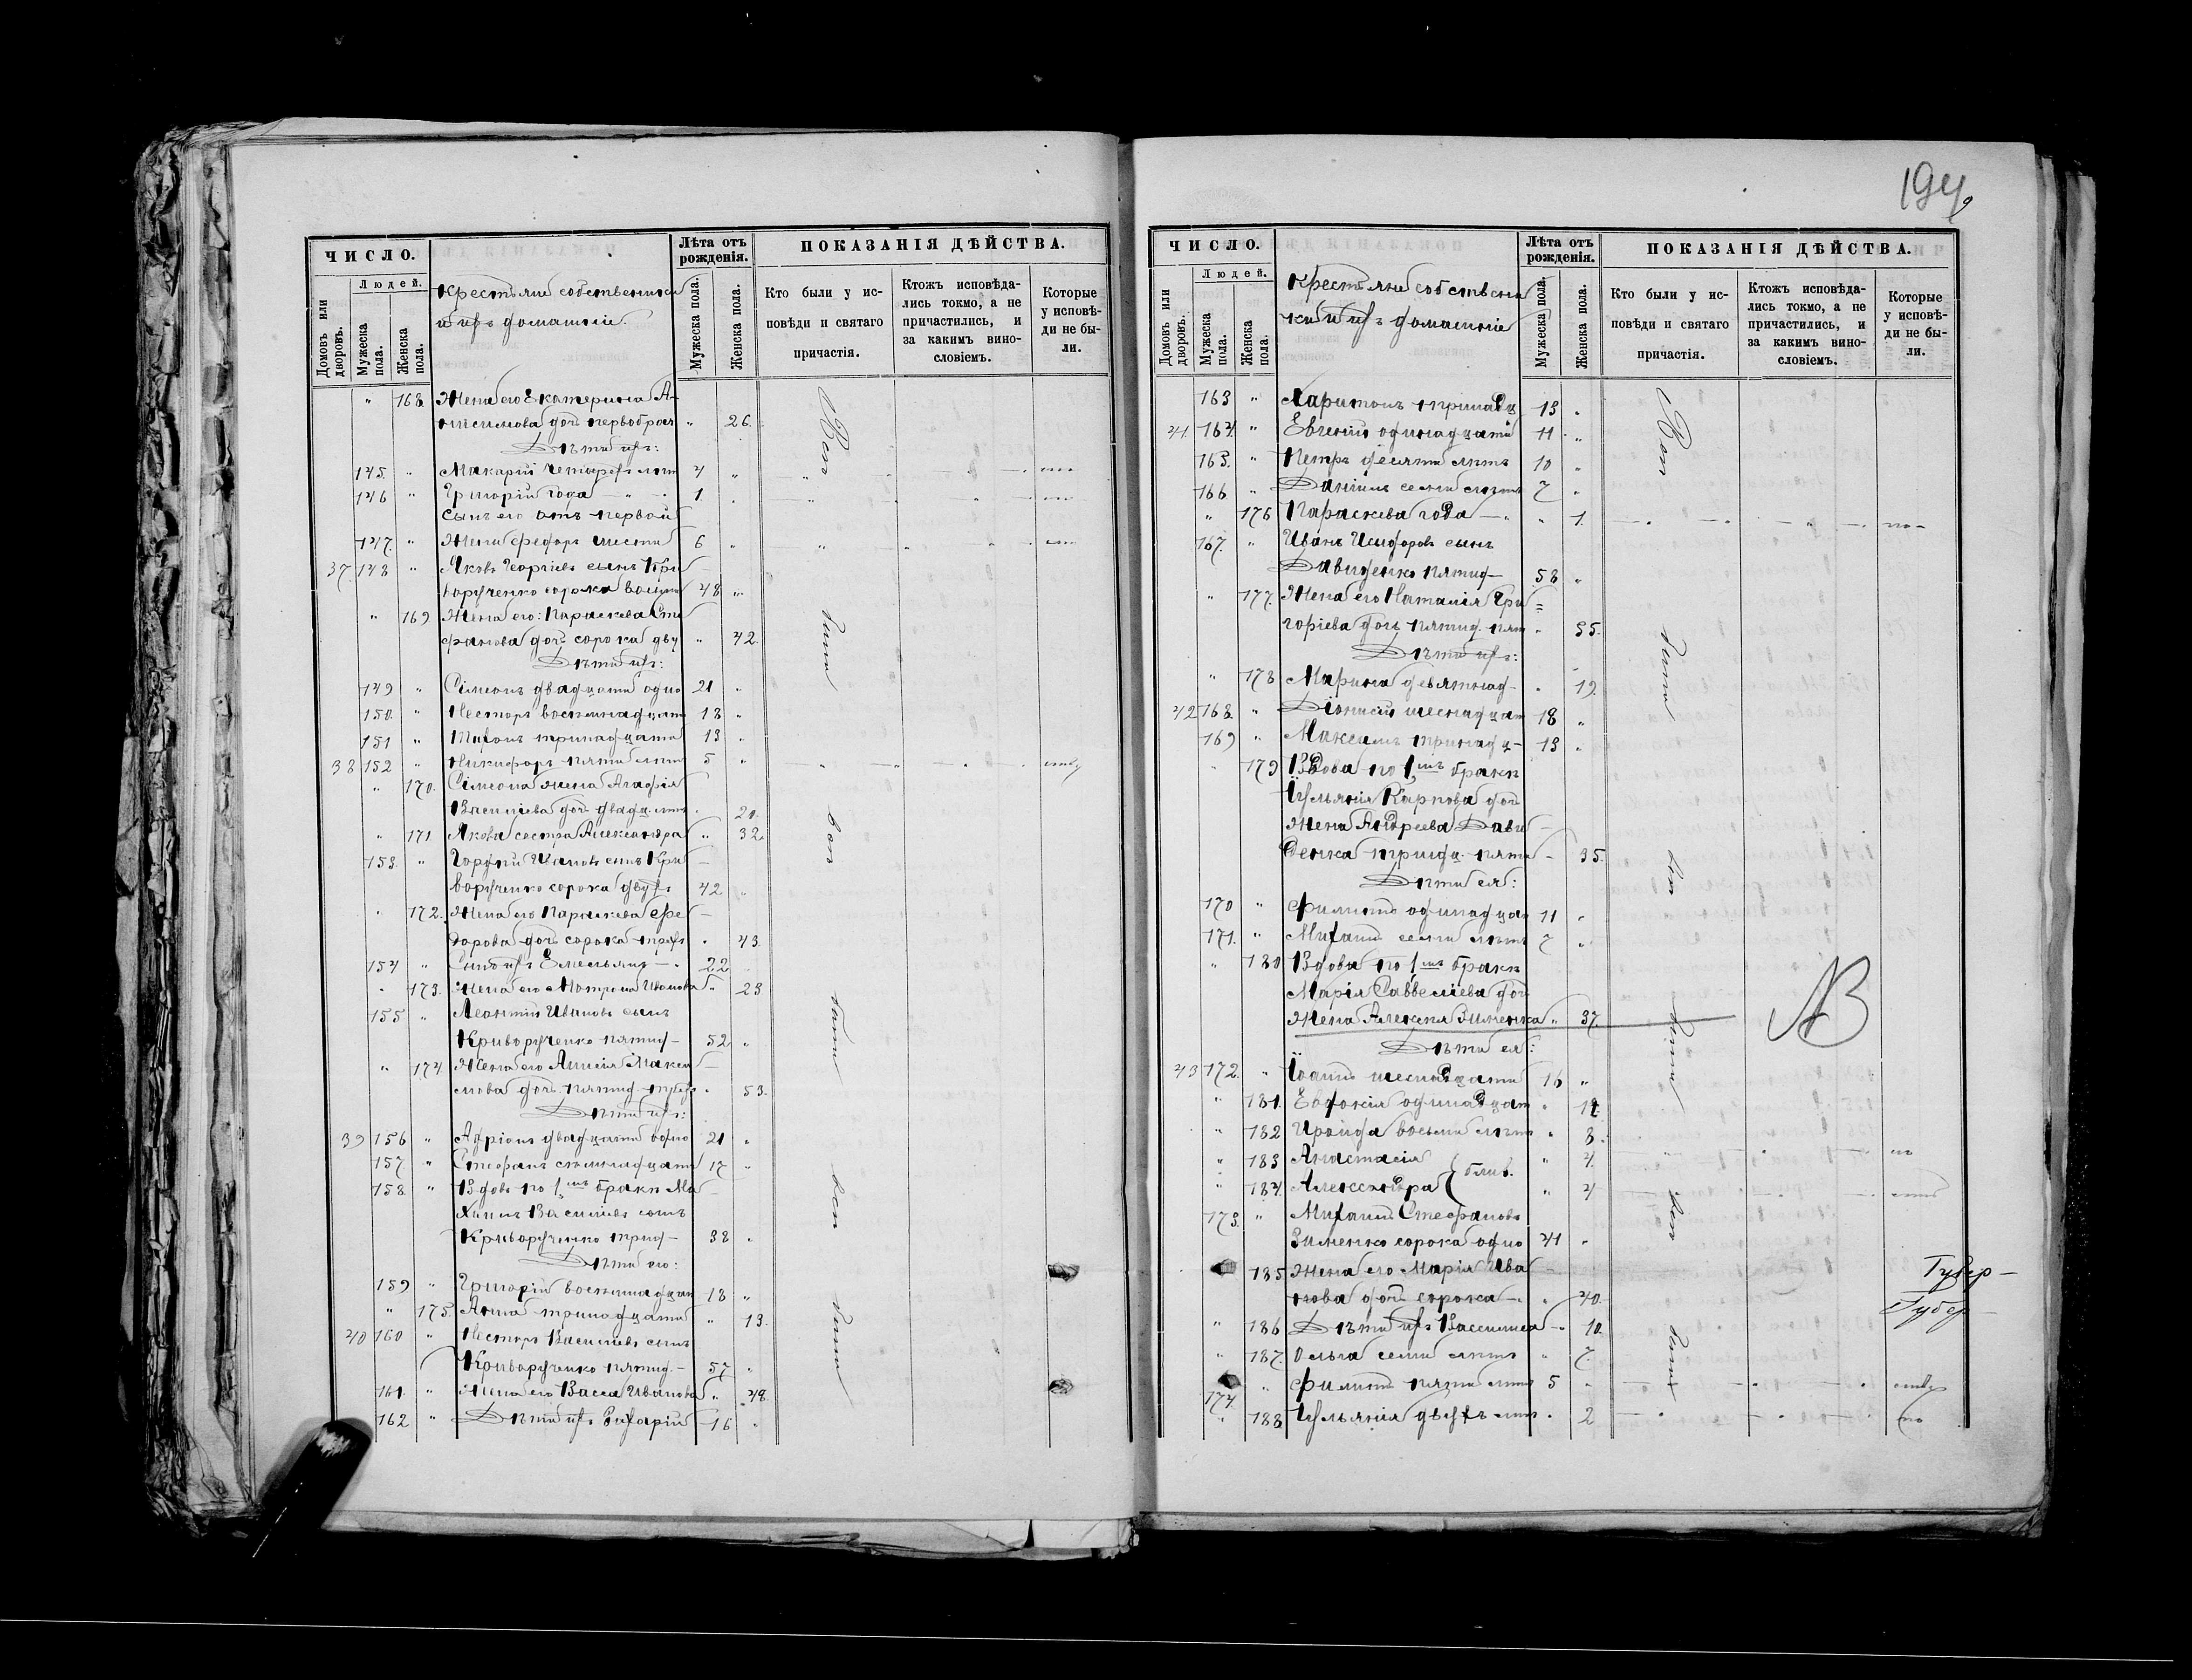 194
ЧИСЛО.
Лѣта отъ рожденія.
ПОКАЗАНІЯ ДѢЙСТВА.
Людей.
Домовъ или дворовъ.
Мужеска пола.
Женска пола.
Крестьяне собственики
и ихъ домашніе.
Мужеска пола.
Женска пола.
Кто были у ис-
повѣди и святаго
причастія.
Ктожъ исповѣда-
лись токмо, а не
причастились, и
за какимъ вино-
словіемъ.
Которые
у исповѣ-
ди не бы-
ли.
" 168 Жена его Екатерина А-
нисимова доч первобрач " 26.
Дѣти ихъ:
145. " Макарій четырехъ лѣт 4 "
146 " Григорій года 1.
Сынъ его отъ первой
147. " Жены Федоръ шести 6 "
37. 148 " Яковъ Георгіевъ сынъ Кри-
ворученко сорока восьми 48 "
" 169 Жена его: Параскева Сте
фанова доч сорока дву " 42.
Дѣти ихъ:
149 " Сімеонъ двадцати одно 21 "
150. " Несторъ восемнадцати 18 "
151 " Тихонъ тринадцати 13 "
38 152 " Никифоръ пяти лѣт 5 "
" 170. Сімеона жена Агафія
Василіева доч двадц. лѣт 20.
" 171 Якова сестра Александра " 32
153. " Іванов сынъ Кри-
ворученко сорока двухъ 42
" 172. Жена его Параскева Фе-
дорова доч сорока трехъ " 43.
154 " Сынъ ихъ Емельянъ 22
" 173. Жена его Мотрона Иванова " 23
155 " Леонтій Ивановъ сынъ
Криворученко пятид- 52 "
" 174 Жена его Анисія Макси-
мова доч. пятид. трехъ " 53.
Дѣти ихъ:
39 156 " Адріанъ двадцати одно 21 "
157. " Стефанъ семнадцати 17 "
158. " Вдовъ по 1мъ бракѣ Ма-
Василіевъ сынъ
Криворученко трид- 38 "
Дѣти его:
159 " Григорій восемнадцати 18 "
" 175. Анна тринадцати " 13.
40 160 " Несторъ Василіевъ сынъ
Криворученко пятид.- 57 "
161. " Жена его Васса Иванова " 48.
162 " Дѣти ихъ Захарій 16 "
Всѣ
были
ЧИСЛО.
Лѣта отъ рожденія.
ПОКАЗАНІЯ ДѢЙСТВА.
Людей.
Домовъ или дворовъ.
Мужеска пола.
Женска пола.
Крестьяне собствени
ки и ихъ домашніе
Мужеска пола.
Женска пола.
Кто были у ис-
повѣди и святаго
причастія.
Ктожъ исповѣда-
лись токмо, а не
причастились, и
за какимъ вино-
словіемъ.
Которые
у исповѣ-
ди не бы-
ли.
163 " Харитонъ тринадц 13 "
41. 164. " Евгеній одинадцати 11 "
165. " Петръ десяти лѣтъ 10 "
166. " Даніилъ семи лѣтъ 7 "
" 176 Параскева года " 1.
167. " Иванъ Исидоровъ сынъ
Давиденко пятид- 58 "
" 177. Жена его Наталія Гри=
горіева доч пятид. пят " 55.
Дѣти ихъ:
" 178 Марина девятнад- " 19.
42 168. " Діонисій шеснадцат 18 "
169 " Максимъ тринадц- 13 "
179 Вдова по 1мъ бракѣ
Іульянія Карпова доч
Жена Андреева Дави-
денка тридц. пяти - 35.
Дѣти ея:
170 " Филипъ одинадцат 11 "
171. " Михаилъ семи лѣтъ 7 "
" 180 Вдова по 1мъ бракѣ
Марія Саввеліева доч
Жена Алексѣя Зименка " 37.
Дѣти ея:
43 172. " Іоаннъ шеснадцати 16 "
" 181. Евдокія одинадцат "
" 182 Ироида восьми лѣтъ " 8.
" 183 Анастасія " 4.
близ.
" 184. Александра " 4
173. " Михаилъ Стефановъ
Зименко сорока одно 41 "
185 Жена его Марія Ива
нова доч сорока " 40.
" 186 Дѣти ихъ Василиса " 10.
" 187. Ольга семи лѣтъ " 7.
174. " Филипъ пяти лѣт 5 "
" 188 Іульянія двухъ лѣт " 2
Всѣ
были
NB
Губер-
Губер-